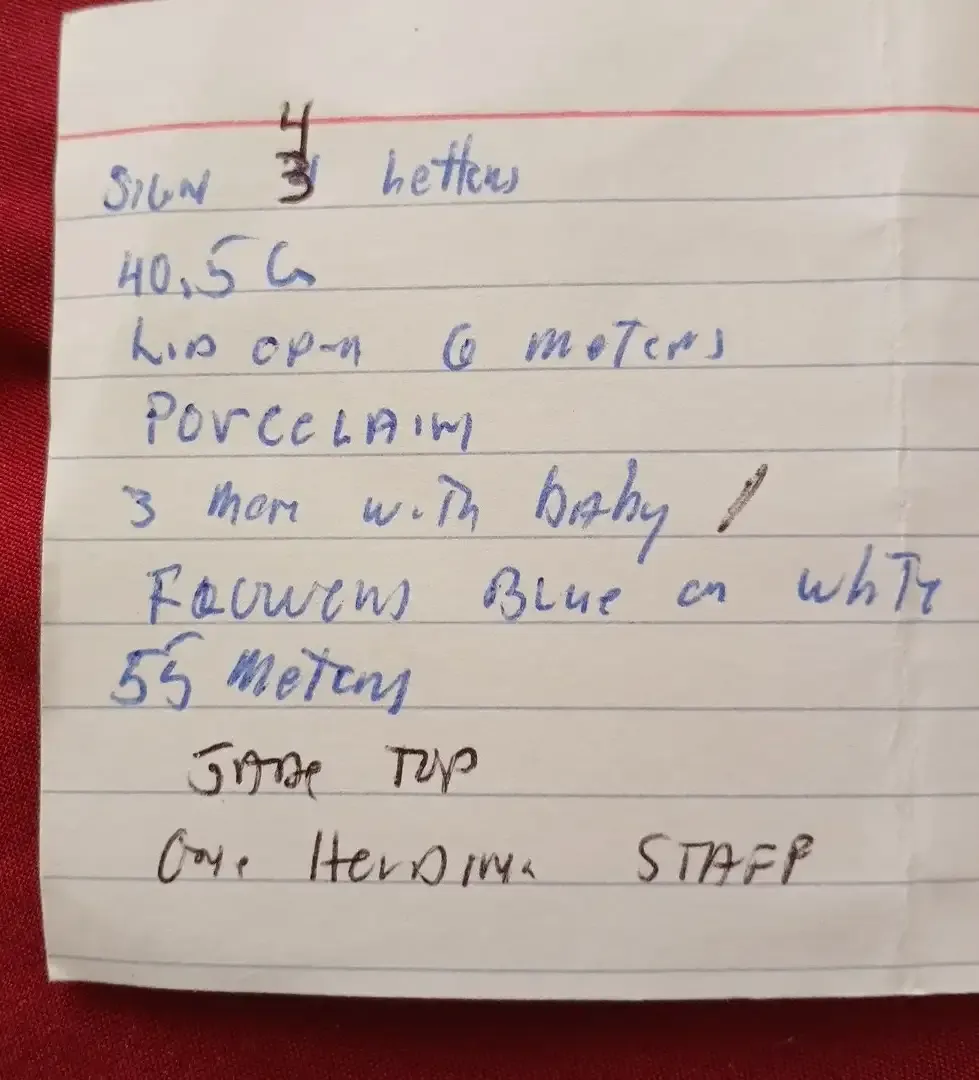 SIGN 4 3 Letters
40.5 G
Lid open 6 meters
PORCELAIN
3 men with baby /
Flowers Blue on white
55 Meters
JADE TOP
One Holding STAFF